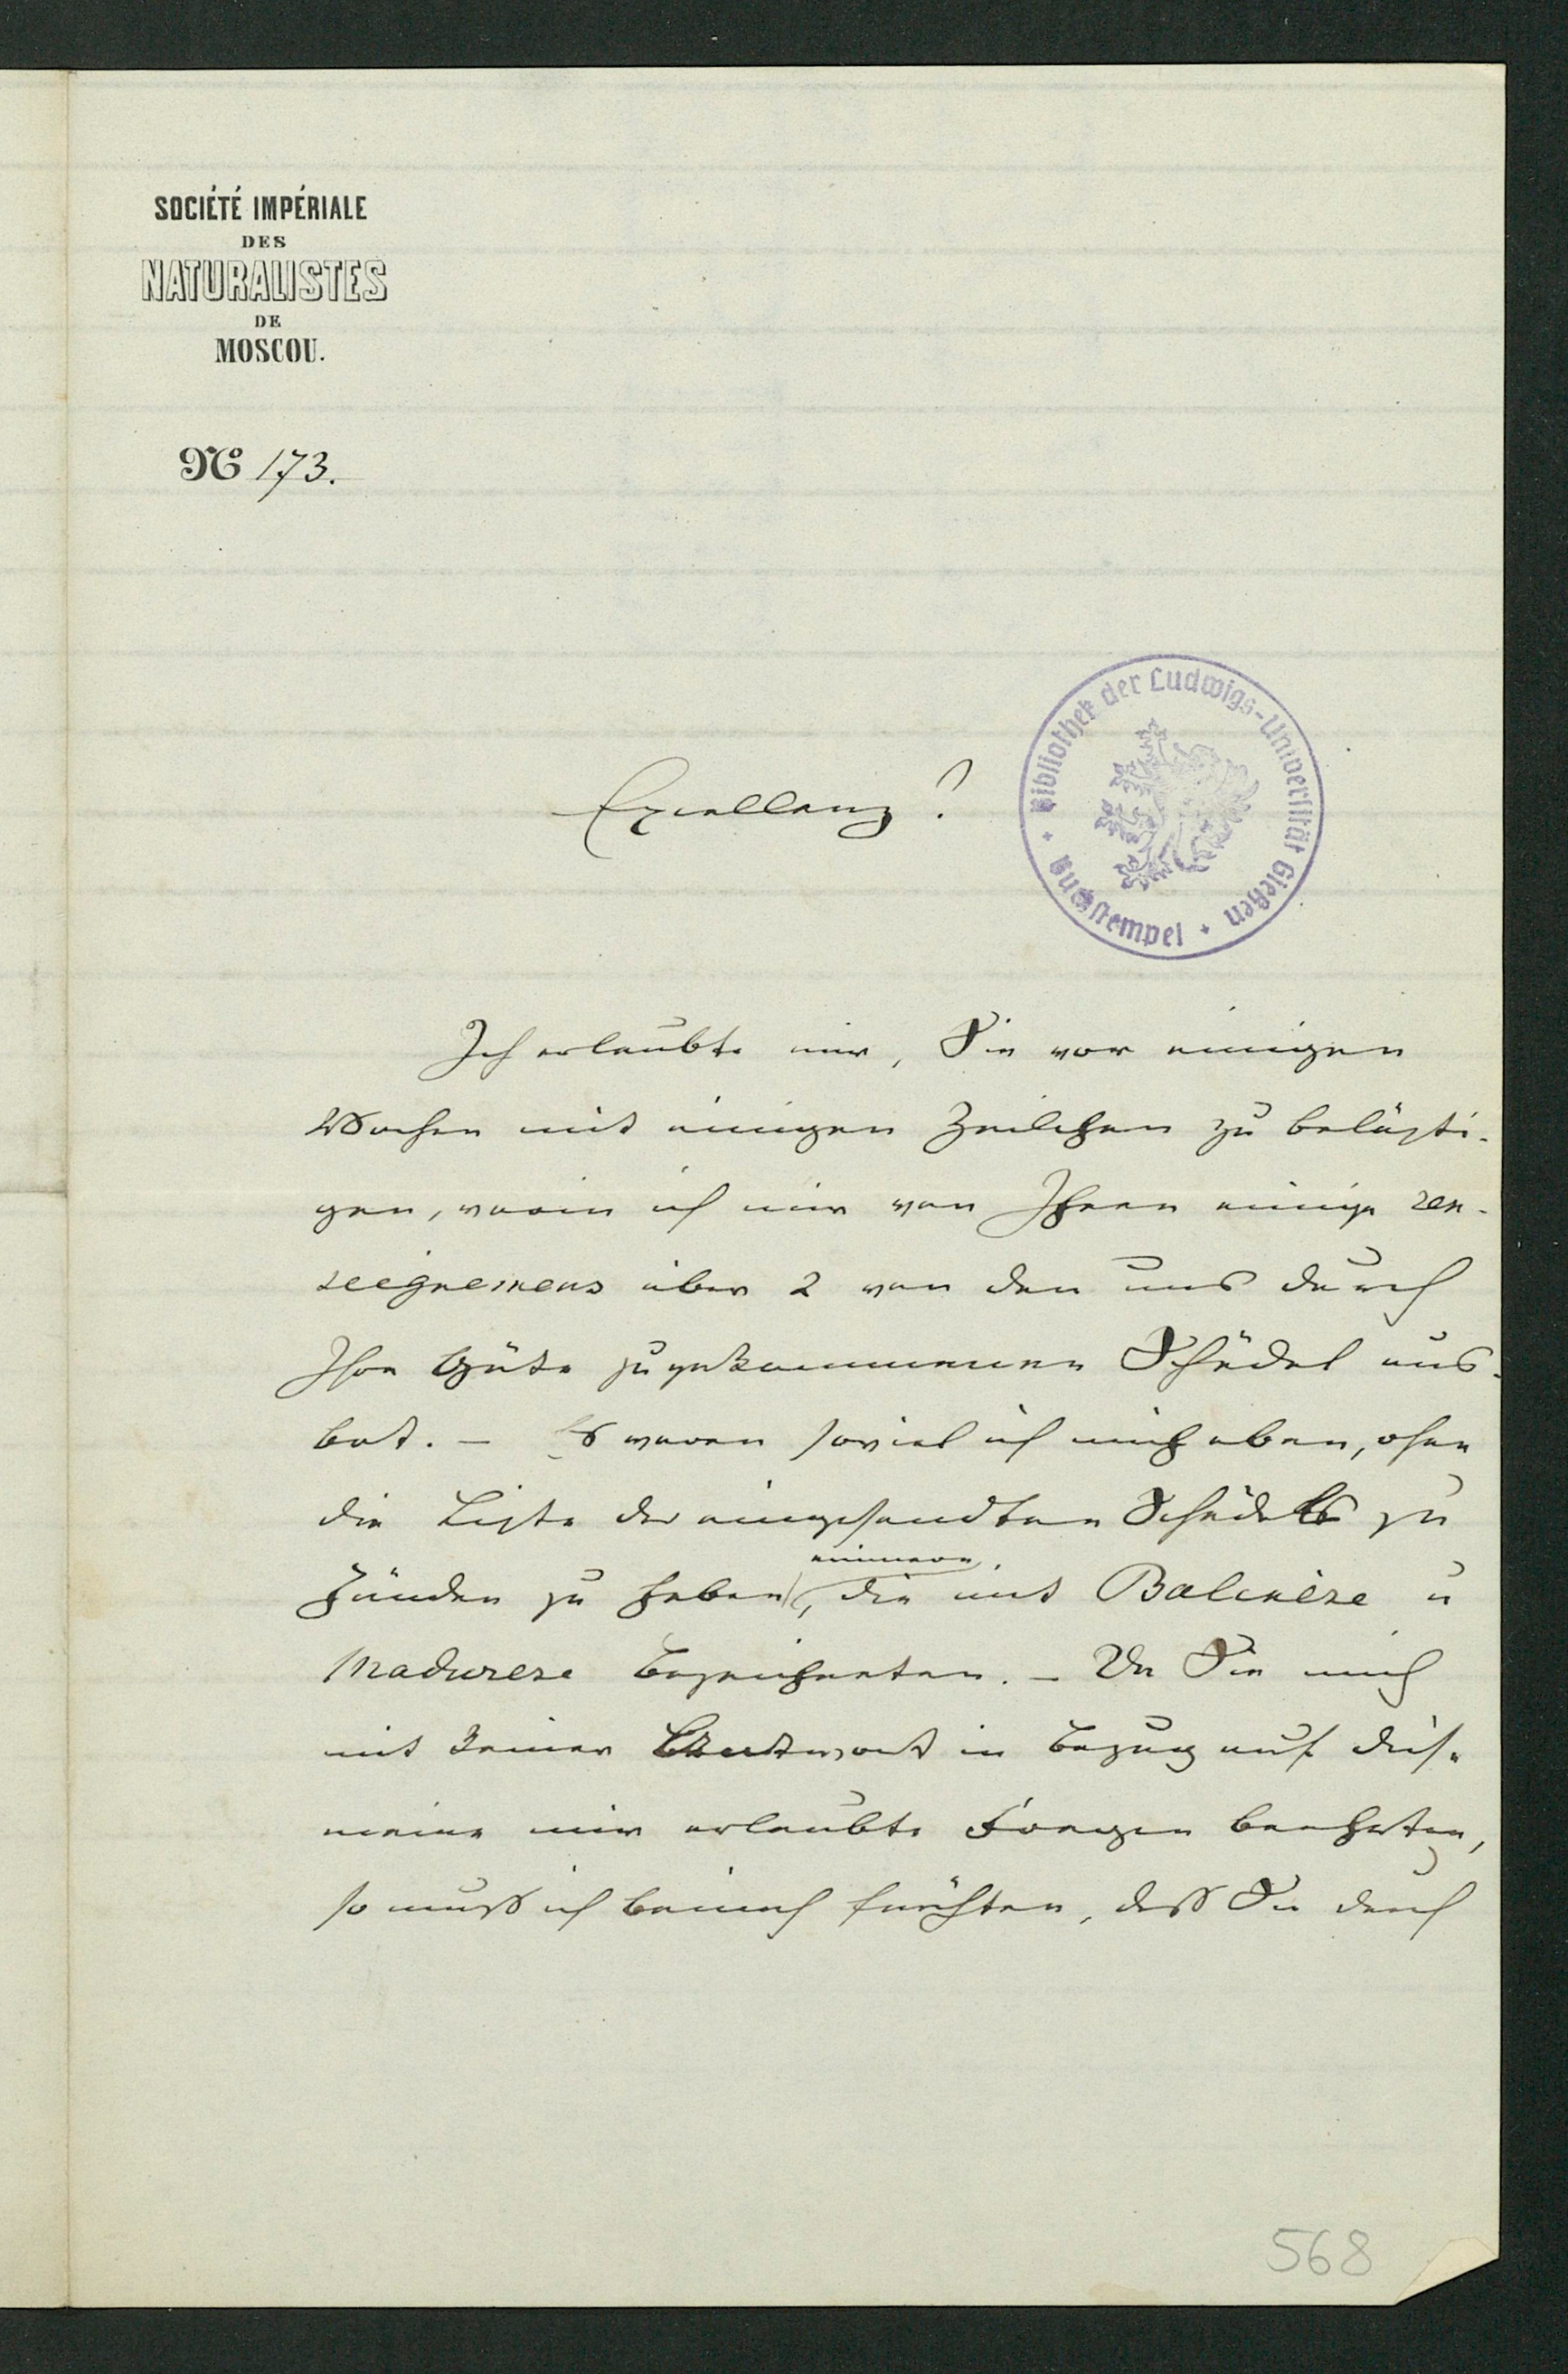 SOCIÉTÉ IMPÉRIALE
DES
NATURALISTES
DE
MOSCOU.
№ 173.
Bibliothek der Ludwigs-Universität Gießen
Buchstempel
Excellenz!
Ich erlaubte mir, Sie vor einigen
Wochen mit einigen Zeilchen zu belästi-
gen, worin ich mir von Ihnen einige ren-
seignemens über 2 von den uns durch
Ihre Güte zugekommenen Schädel aus-
bat. – Es waren soviel ich mich eben, ohne
die Liste der eingesandten Schädels zu
Händen zu haben, erinnere, die mit Balinèse u
Madurese bezeichneten. – Da Sie mich
mit keiner Antwort in Bezug auf diese
meine mir erlaubte Fragen beehrten,
so muß ich beinah fürchten, daß Sie durch
568